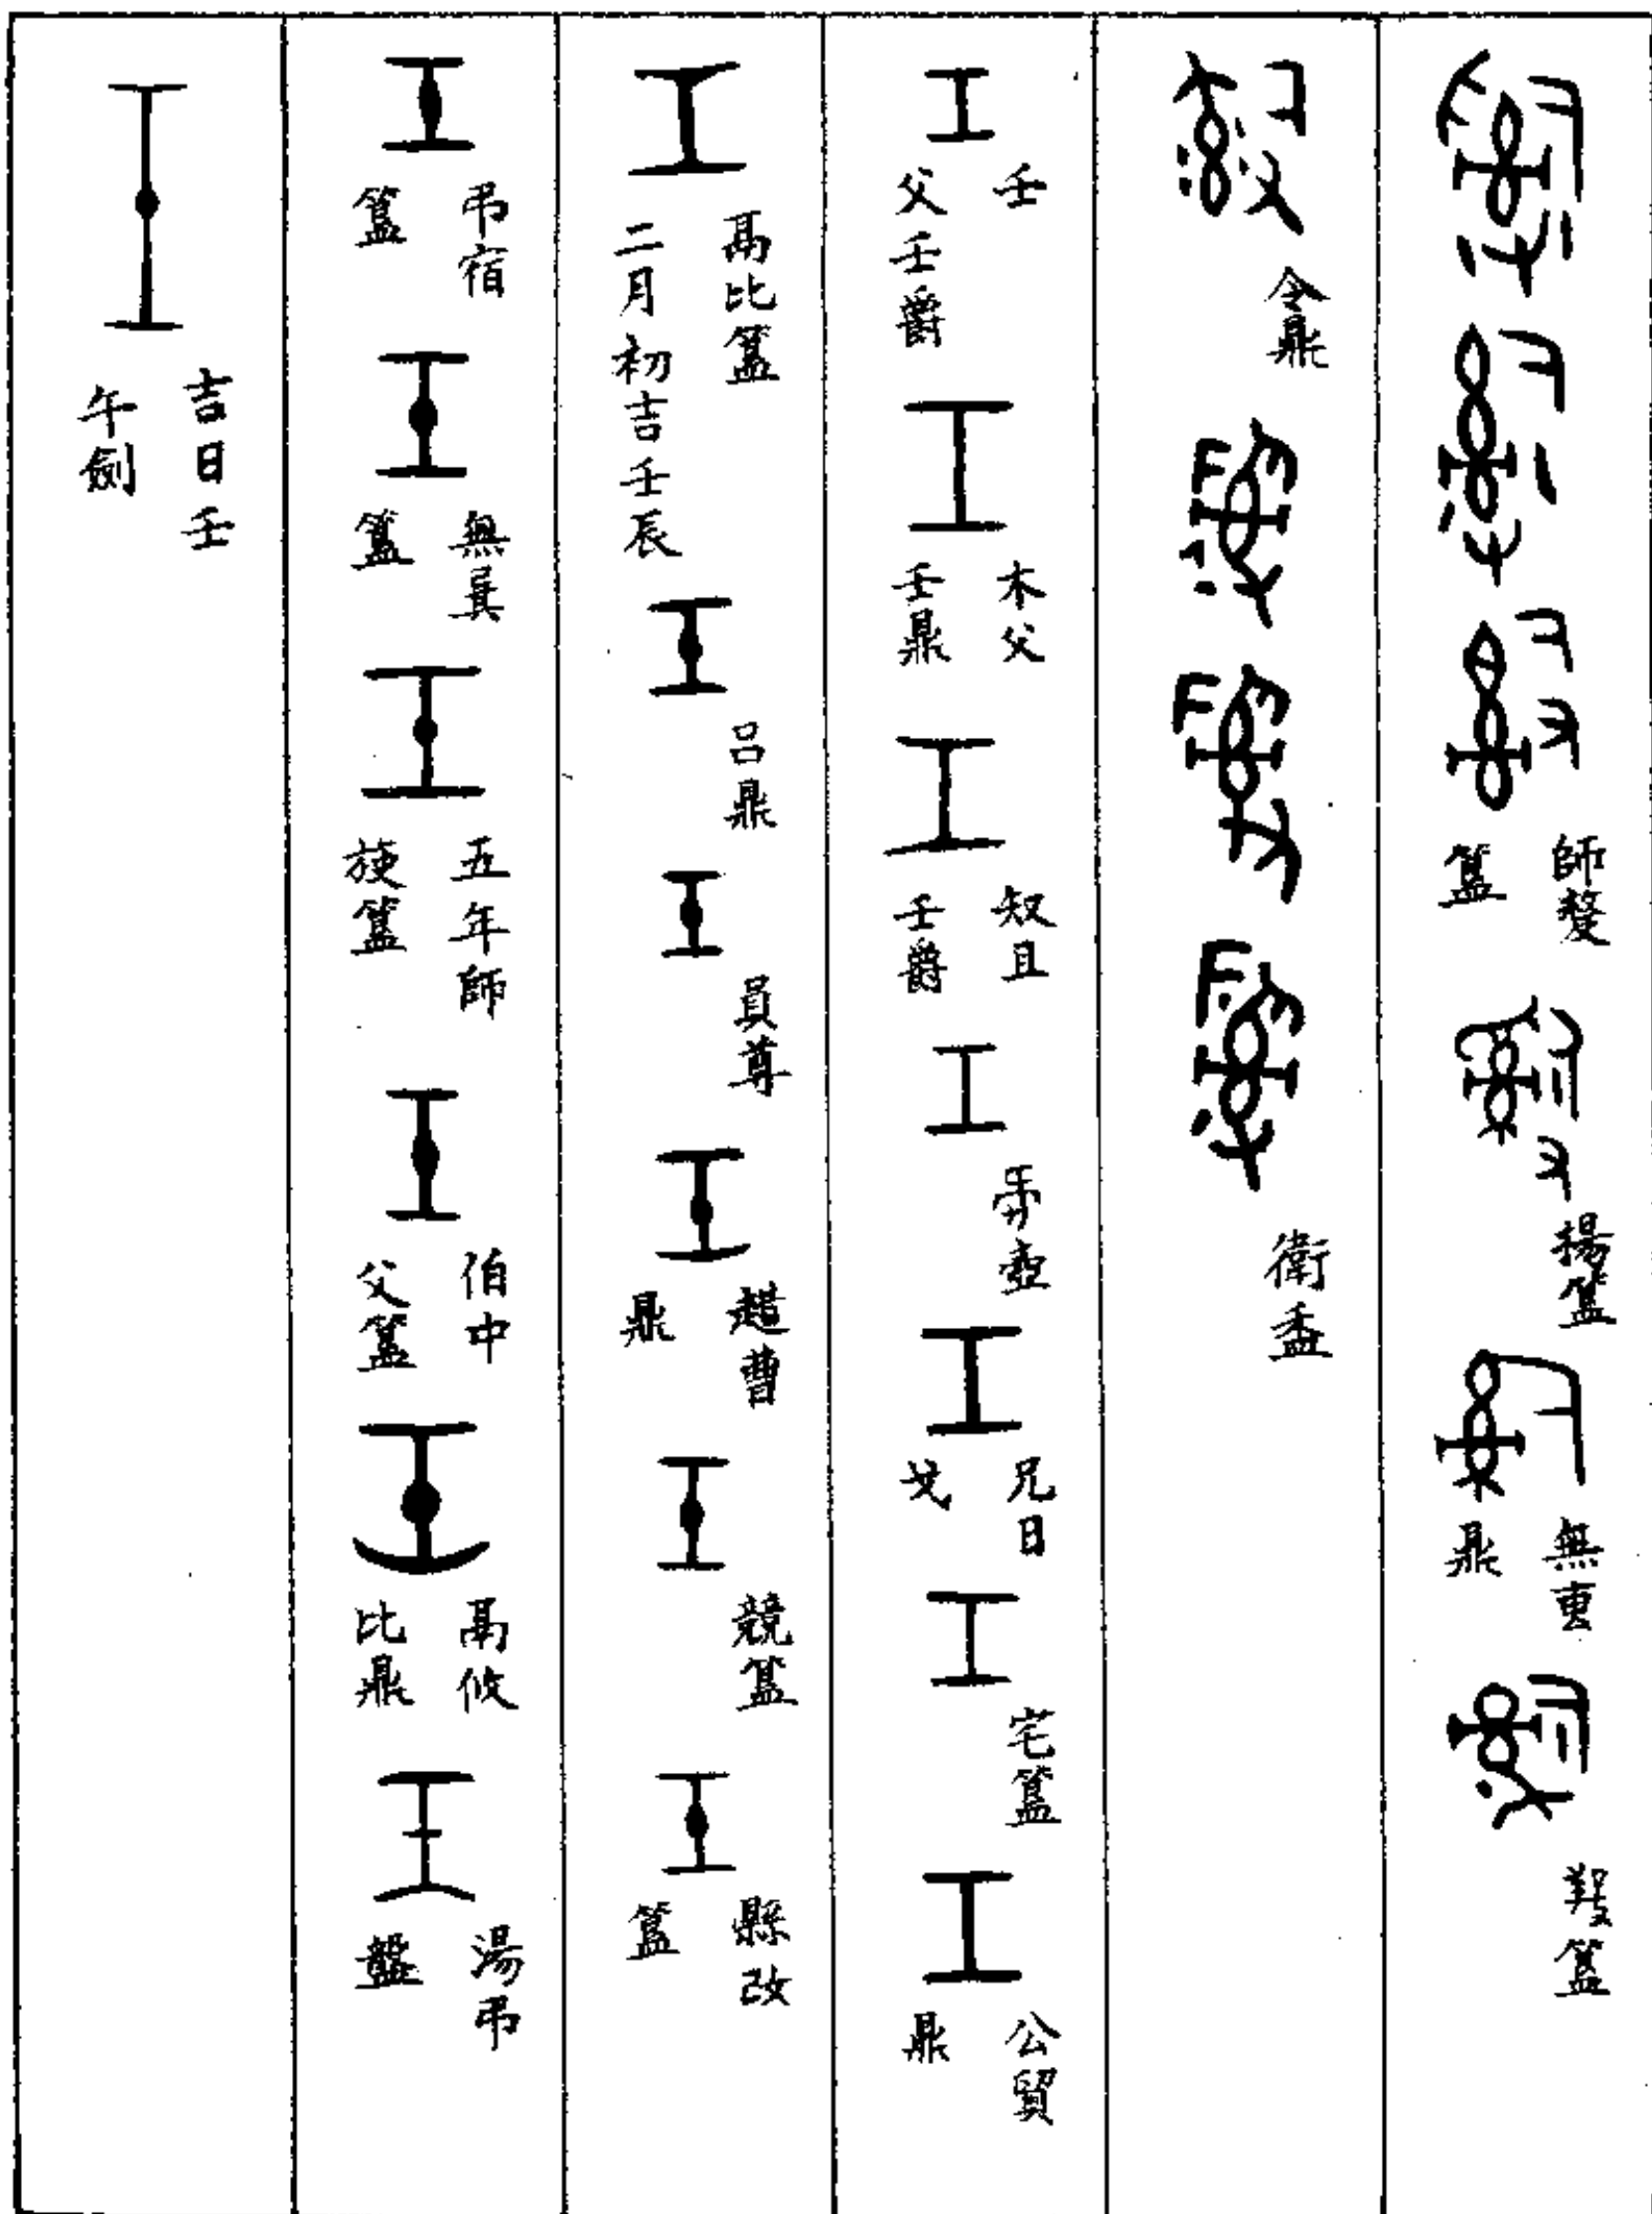 師嫠簋 揚簋 無叀鼎 簋
令鼎 衛盉
壬 父壬爵 木父壬鼎 且壬爵 壺 兄日戈 宅簋 公貿鼎
鬲比簋 二月初吉壬辰 呂鼎 員尊 趞曹鼎 競簋 縣改簋
弔宿簋 無㠱簋 五年師旋簋 伯中父簋 鬲攸比鼎 湯弔盤
吉日壬午劍